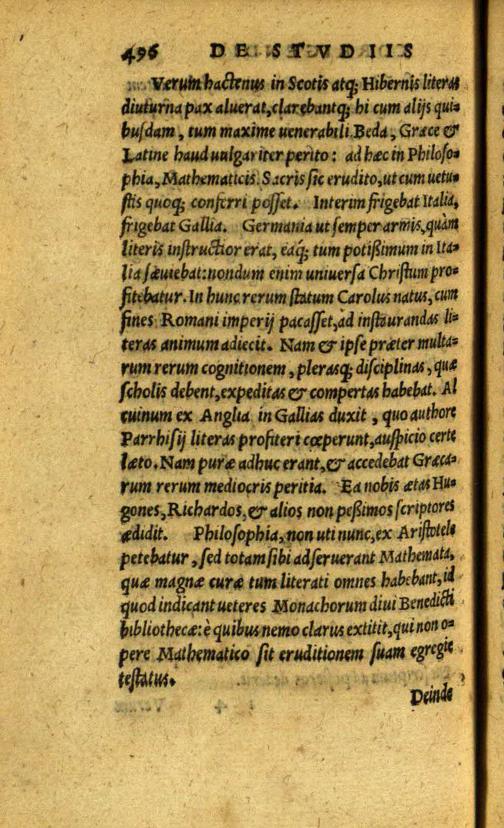 496 DE STVDIIS
Verum hactenus in Scotis atq; Hibernis literas
diuturna pax aluerat, clarebantq; hi cum alijs qui=
busdam, tum maxime uenerabili Beda, Græce &
Latine haud uulgariter perito: ad hæc in Philoso=
phia, Mathematicis. Sacris sic erudito, ut cum uetu=
stis quoq; conferri posset. Interim frigebat Italia,
frigebat Gallia. Germania ut semper armis, quàm
literis instructior erat, eaq́; tum potißimum in Ita=
lia sæuiebat: nondum enim uniuersa Christum pro=
fitebatur. In hunc rerum statum Carolus natus, cum
fines Romani imperij pacasset, ad instaurandas li=
teras animum adiecit. Nam & ipse præter multa=
rum rerum cognitionem, plerasq; disciplinas, quæ
scholis debent, expeditas & compertas habebat. Al
cuinum ex Anglia in Gallias duxit, quo authore
Parrhisij literas profiteri cœperunt, auspicio certe
læto. Nam puræ adhuc erant, & accedebat Græca=
rum rerum mediocris peritia. Ea nobis ætas Hu=
gones, Richardos, & alios non peßimos scriptores
ædidit. Philosophia, non uti nunc, ex Aristotele
petebatur, sed totam sibi adseruerant Mathemata,
quæ magnæ curæ tum literati omnes habebant, id
quod indicant ueteres Monachorum diui Benedicti
bibliothecæ: è quibus nemo clarus extitit, qui non o=
pere Mathematico sit eruditionem suam egregie
testatus.
Deinde